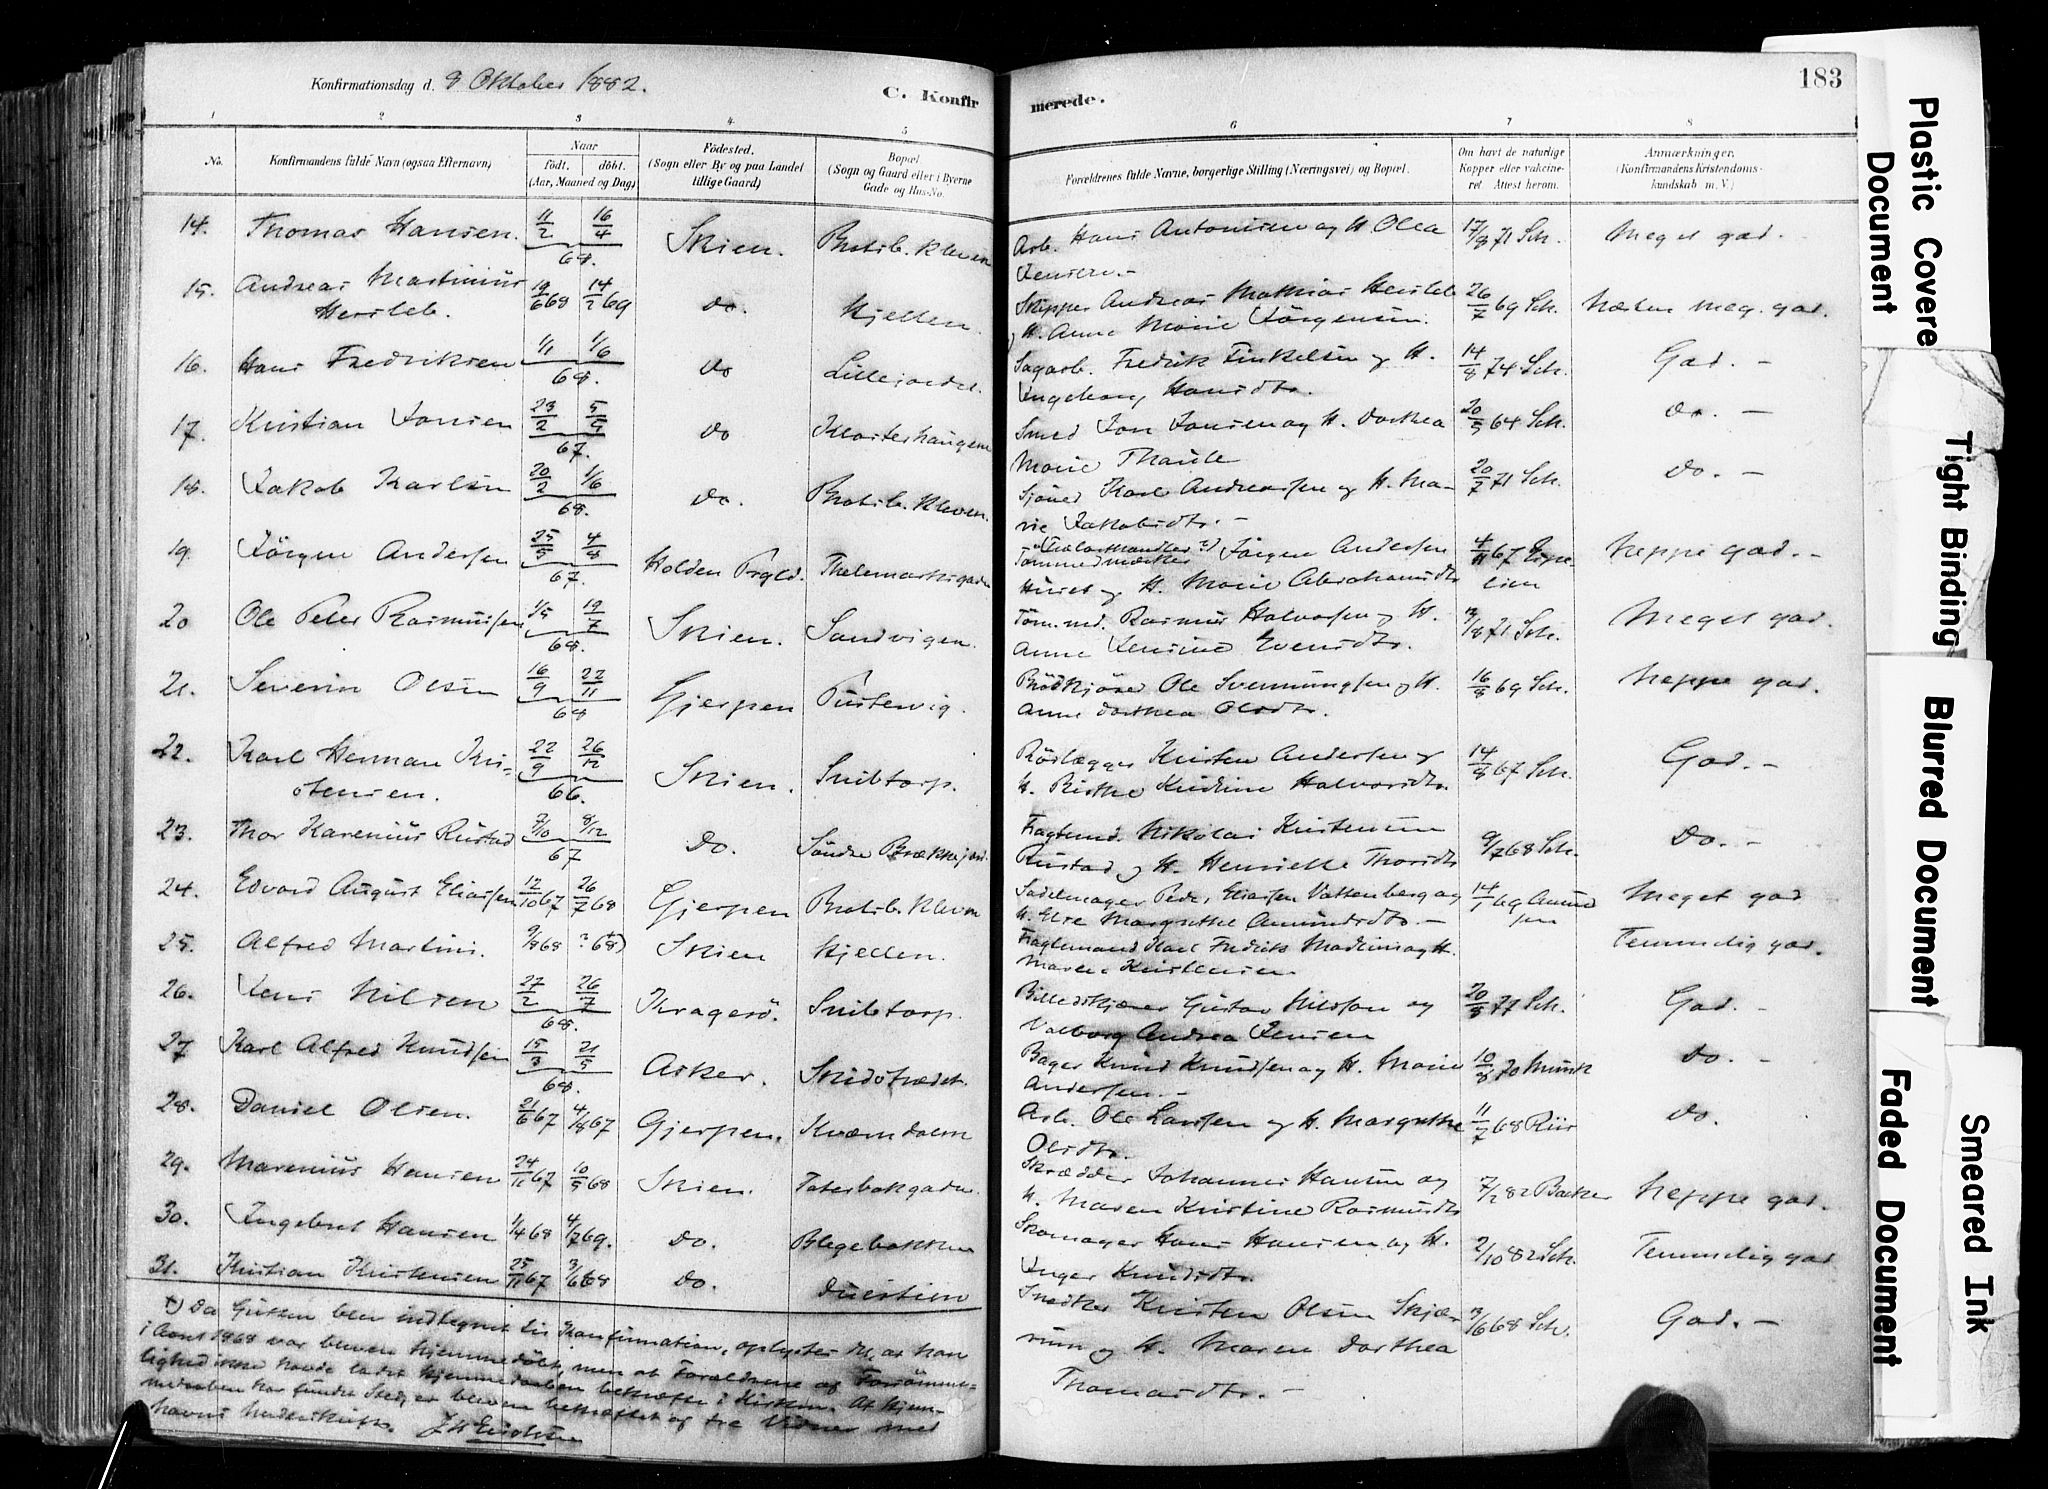 183
Konfirmationsdag d. 8 Oktober 1882.
C. Konfirmerede.
1 2 3 4 5 6 7 8
No.
Konfirmandens fulde Navn (ogsaa Efternavn)
Naar
födt. döbt.
(Aar, Maaned og Dag)
Födested.
(Sogn eller By og paa Landet
tillige Gaard)
Bopæl
(Sogn og Gaard eller i Byerne
Gade og Hus-No.
Forældrenes fulde Navne, borgerlige Stilling (Næringsvei) og Bopæl.
Om havt de naturlige
Kopper eller vakcine-
ret. Attest herom.
Anmærkninger.
(Konfirmandens Kristendoms-
kundskab m. V.)
14. Thomas Hansen. 11/2 16/4 68. Skien. Bratsb. Kleven Arb. Hans Antonisen og H. Olea Jensen.- 17/8 71 Sch. Meget god.-
15. Andreas Martinius Hersleb. 19/6 68 14/2 69 Do. Hjellen. Skipper Andreas Mathias Hersleb og H. Anne Marie Jörgensen. 26/7 69 Sch. Næsten meg. god.
16. Hans Fredriksen 1/1 1/6 68. Do Lillejordet. Sagarb. Fredrik Finkelsen og H. Ingeborg Hansdtr. 14/8 74 Sch. God.-
17. Kristian Jonsen 23/2 5/9 67. Do Klosterhaugene Smed Jon Jonsen og H. Dorthea Marie Thaule 20/5 64 Sch. Do.-
18. Jakob Karlsen 20/2 1/6 68. Do. Bratsb. Kleven. Sjömd Karl Andreassen og H. Marie Jakobsdtr.- 20/7 71 Sch. Do.-
19. Jörgen Andersen 25/5 4/8 67. Holden Prgld. Thelemarksgaden Tömmermærker Jörgen Andersen Huset og H. Marie Abrahamsdtr 4/11 67 Neppe god.-
20 Ole Peter Rasmussen 1/5 19/7 68. Skien. Sandvigen. Töm.md. Rasmus Halvorsen og H. Anne Jensine Evensdtr. 3/8 71 Sch. Meget god.
21. Severin Olsen 16/9 22/11 68 Gjerpen Pustervig. Brödkjöre Ole Svennungsen og H. Anne Dorthea Olsdtr. 16/8 69 Sch. Neppe god.
22. Karl Herman Kristensen. 22/9 26/12 66. Skien. Snibtorp. Rörlægger Kristen Andersen og H. Birthe Kirstine Halvorsdtr. 14/8 67 Sch. God.-
23. Thor Karenius Rustad 7/10 8/12 67 Do. Söndre Brækkejord. Fragtmd. Nikolai Kristensen Rustad og H. Henriette Thorsdtr 9/7 68 Sch. Do.-
24. Edvard August Eliassen 12/10 67 26/7 68 Gjerpen Bratsb. Kleven Sadelmager Peder Eliasen Vattenberg og H. Else Margrethe Amundsdtr.- 14/1 69 Amundsen Meget god
25. Alfred Martini. 9/8 68 ? 68) Skien Hjellen. Fragtemand Karl Fredrik Martinius og H. Maren Kristensen Temmelig god.
26. Jens Nilsen 27/2 26/7 68. Kragerö. Snibtorp. Billedskjærer Gustav Nilsson og Valborg Andrea Jensen 20/8 77 Sch. God.-
27 Karl Alfred Knudsen 15/3 21/5 68 Asker. Skidstrædet. Bager Knud Knudsen og H. Marie Andersen.- 10/8 70 Munk Do.-
28. Daniel Olsen. 21/6 67 4/8 67 Gjerpen. Kværndalen Arb. Ole Larssen og H. Margrethe Olsdtr. 11/7 68 Riis Do.
29. Marenius Hansen 24/11 67 10/5 68 Skien. Taterbakgaden. Skrædder Johannes Hansen og H. Maren Kristine Rasmusdtr 7/2 82 Backer Neppe god.
30. Ingebret Hansen 1/4 68 4/7 69. Do. Blegebakken Skomager Hans Hansen og H. Inger Knudsdtr. 2/10 82 Sch. Temmelig god
31. Kristian Kristensen 25/11 67 3/6 68 Do. Duestien Snedker Kristen Olsen Skjærum og H. Maren Dorthea Thomasdtr.- 3/6 68 Sch. God.-
t) Da Gutten blev indtegnet til Konfirmation, oplystes det, at han
i Aaret 1868 var bleven hjemmedöbt, men at Forældrene af Forsömme-
lighed ikke havde ladet Hjemmedaaben bekræfte i Kirken. At Hjem-
medaaben har fundet Sted, er bleven bekræftet af tre Vidner med
Navns Underskrift.
Plastic Covered Document
Tight Binding
Blurred Document
Smeared Ink
Faded Document